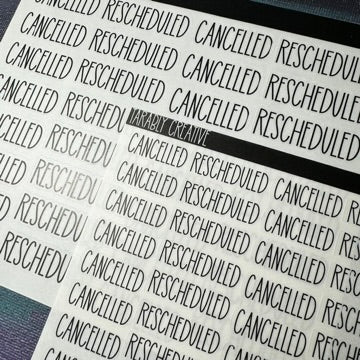 CANCELLED RESCHEDULED CANCELLED RESCHEDULED
CANCELLED RESCHEDULED CANCELLED RESCHEDULED
CANCELLED RESCHEDULED CANCELLED RESCHEDULED
CANCELLED RESCHEDULED CANCELLED RESCHEDULED
CANCELLED RESCHEDU
CANCELLED RESCHEDU
CANCELLED RESCHEDU
CANCELLED RESCHEDU
CANCELLED RESCHEDUL
CREATIVE
CANCELLED RESCHEDULED CANCELLED RESCHEDULED
CANCELLED RESCHEDULED CANCELLED RESCHEDULED
CANCELLED RESCHEDULED CANCELLED RESCHEDULED
CANCELLED RESCHEDULED CANCELLED
CANCELLED RESCHEDULED CANCELLED
CANCELLED RESCHEDULED CANCELLED
CANCELLED RESCHEDULED